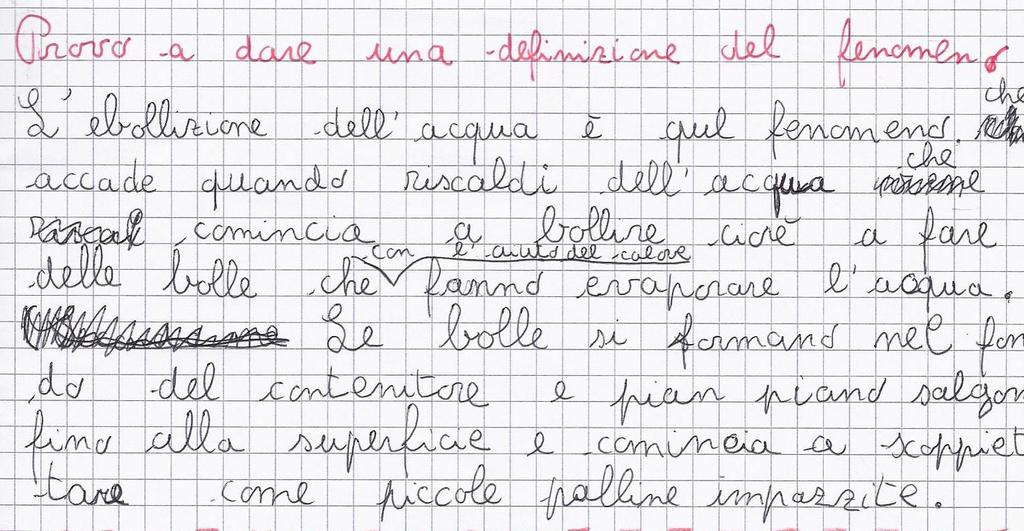 Provo a dare una definizione del fenomeno
L'ebollizione dell'acqua è quel fenomeno che
accade quando riscaldi dell'acqua che
comincia a bollire cioè a fare
con l'aiuto del calore
delle bolle che fanno evaporare l'acqua.
Le bolle si formano nel fon
do del contenitore e pian piano salgon
fino alla superficie e comincia a scoppiet
tare come piccole palline impazzite.